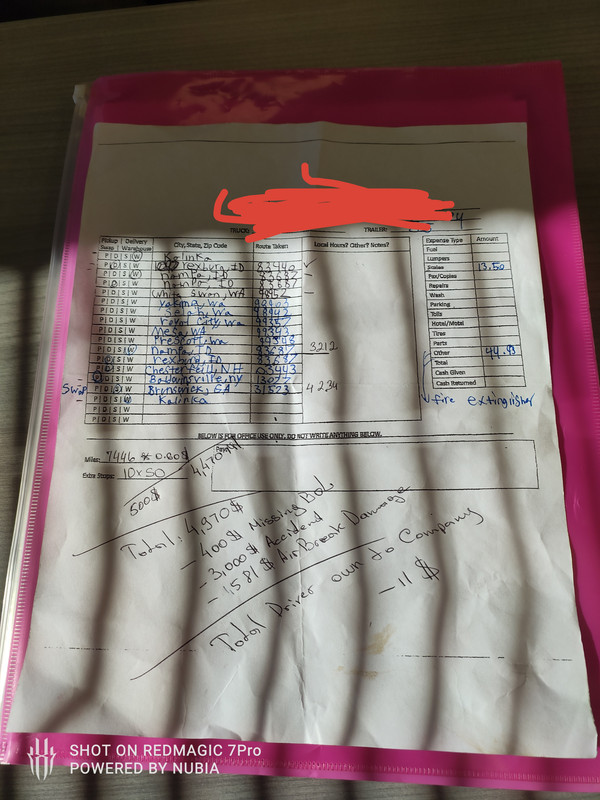 TRUCK:
TRAILER:
Pickup Delivery
Swap Warehouse
City, State, Zip Code
Route Taken:
Local Hours? Other? Notes?
P D S W Kalinka
P D S W Rexburg, ID 83440
P D S W Nampa, ID
P D S W Nampa, ID 83687
P D S W White Swan, WA 98952
P D S W Yakima, Wa
P D S W Selah, Wa 98942
P D S W Royal City, Wa
P D S W Mesa, WA 99343
P D S W Prescott, Wa 99348
P D S W Nampa, ID 3212
P D S W Rexburg, ID
P D S W Chesterfield, NH 03443
P D S W Baldwinsville, NY
Swap P D S W Brunswick, GA 31523 4234
P D S W Kalinka
P D S W
P D S W
Expense Type Amount
Fuel
Lumpers
Scales 13.50
Fax/Copies
Repairs
Wash
Parking
Tolls
Hotel/Motel
Tires
Parts
Other 44.93
Total
Cash Given
Cash Returned
fire extinguisher
BELOW IS FOR OFFICE USE ONLY, DO NOT WRITE ANYTHING BELOW.
Miles: 7446
Extra Stops: 10x50
500$
Total: 4,970$
- 400$ Missing BOL
- 3,000$ Accidend
- 1,581$ Air Break Damage
Total Driver own to Company
- 11 $
SHOT ON REDMAGIC 7Pro
POWERED BY NUBIA